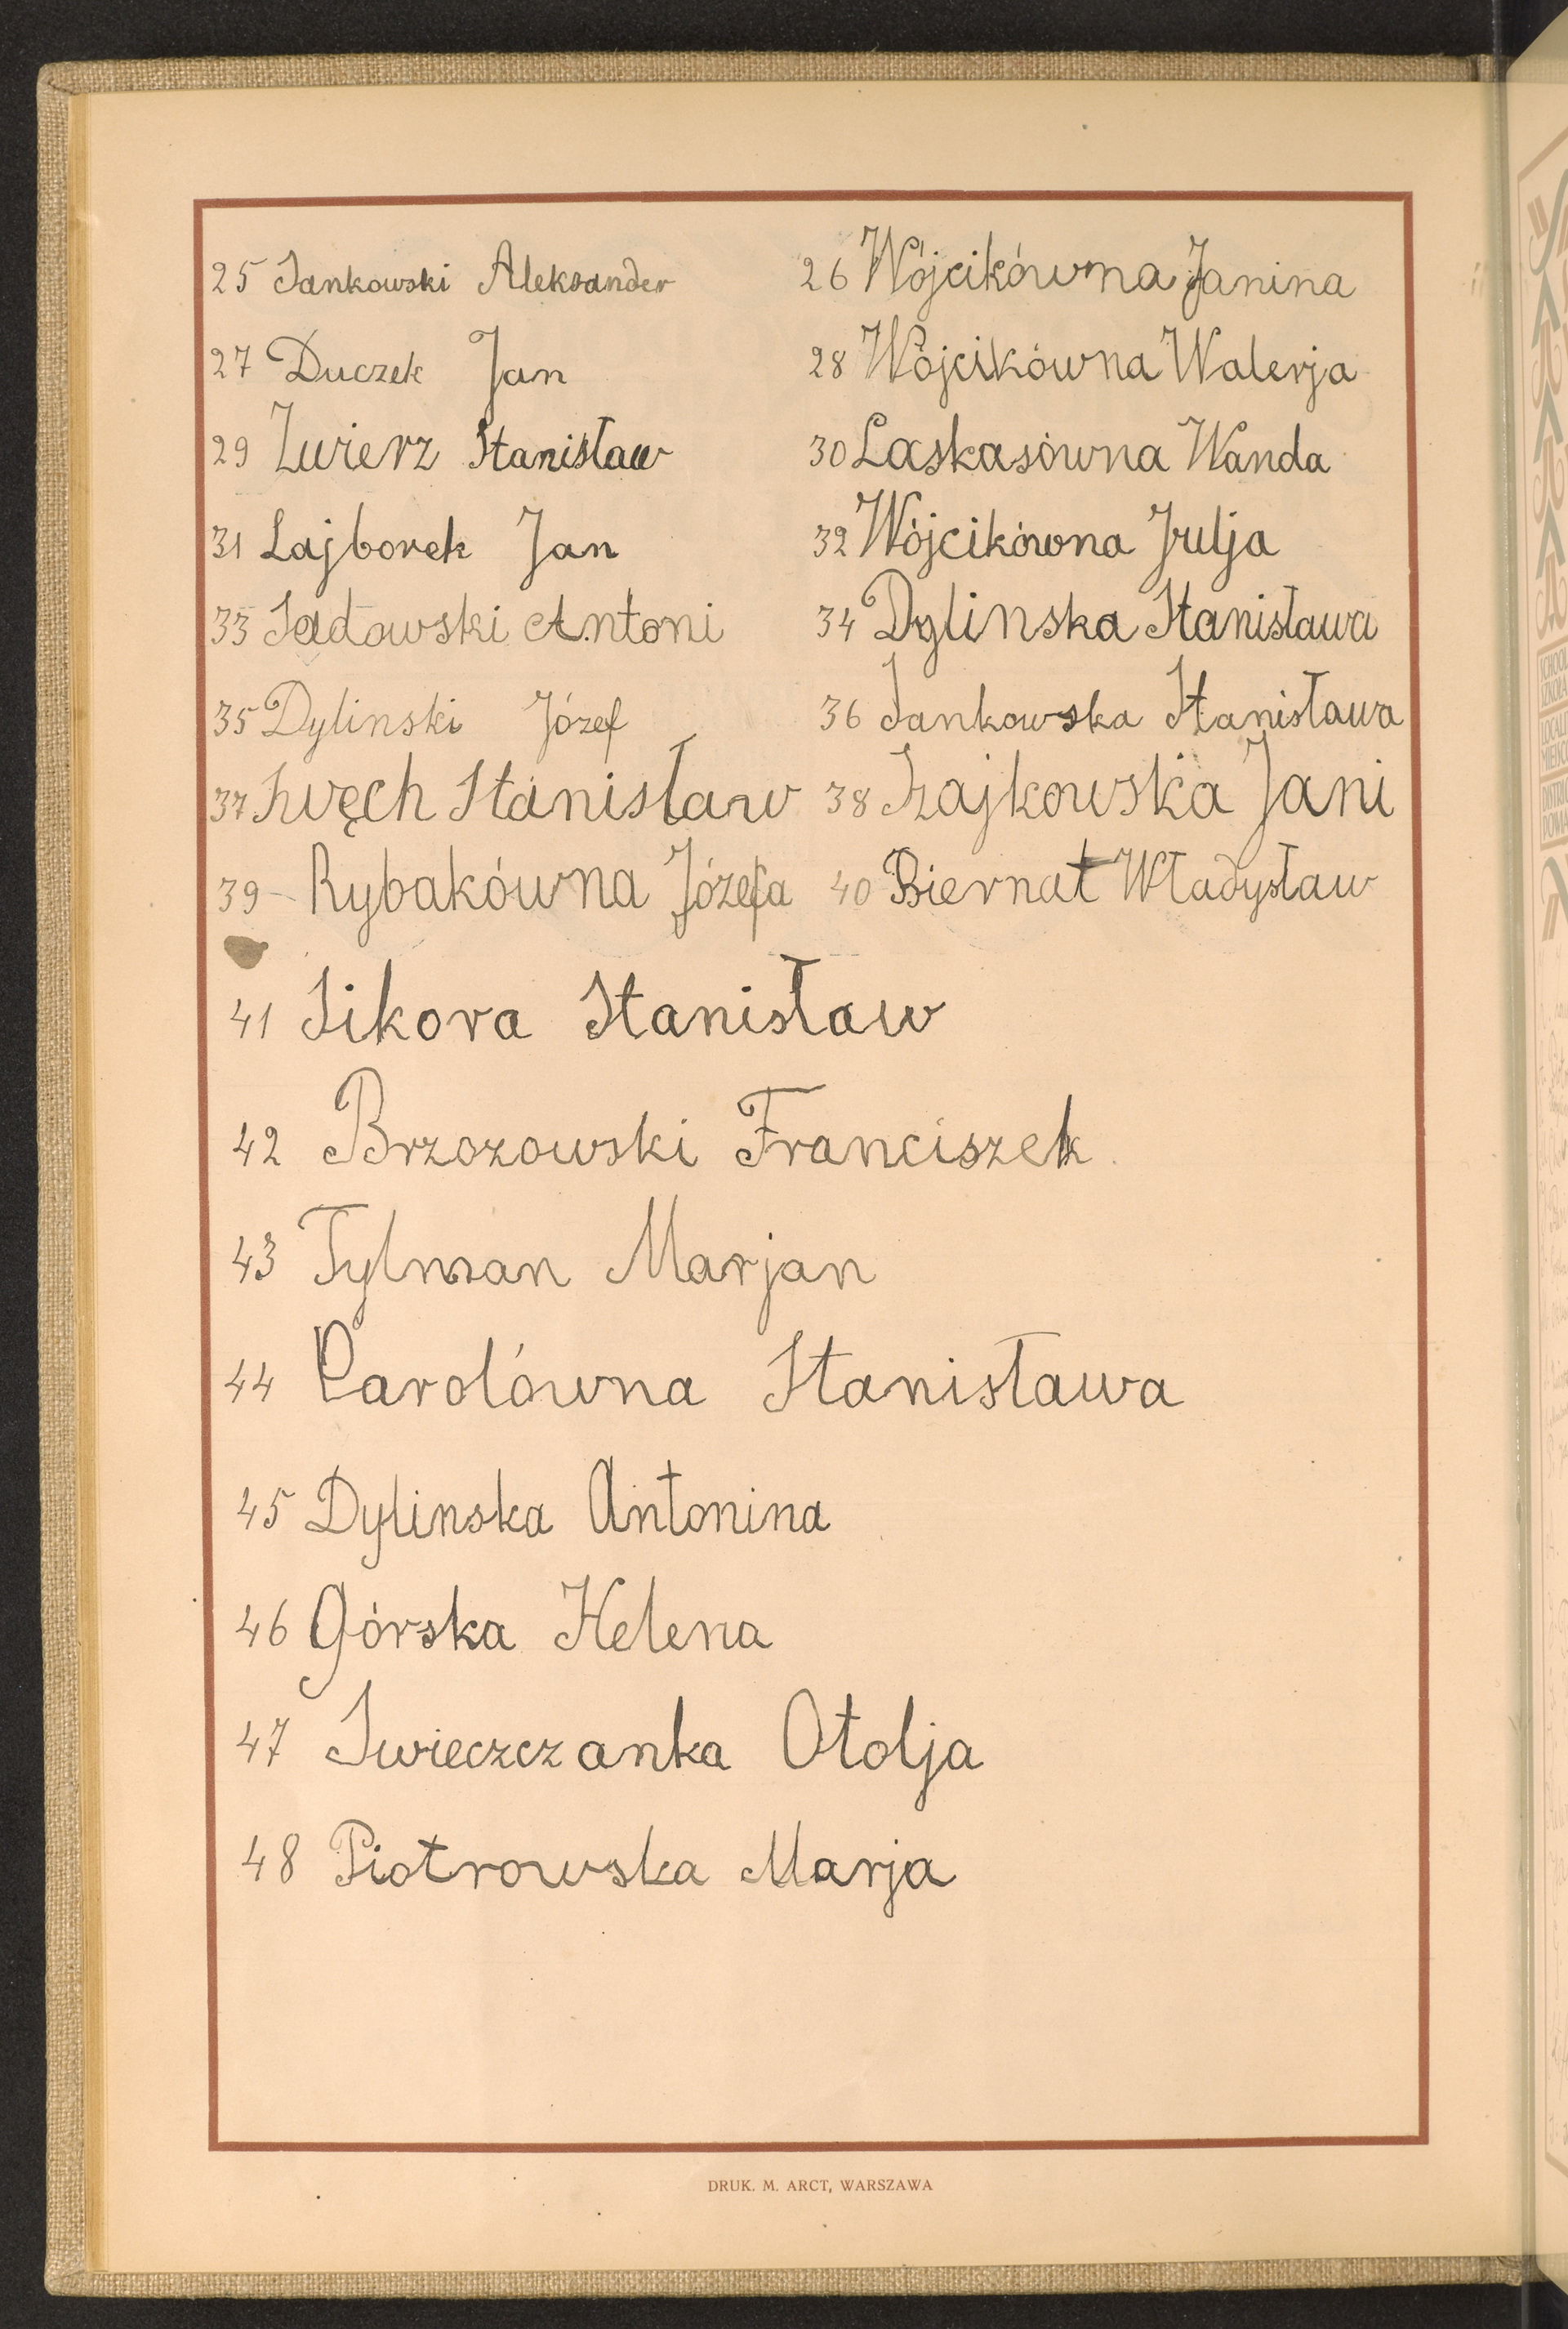 25 Jankowski Aleksander 26 Wójcikówna Janina
27 Duczek Jan 28 Wójcikówna Walerja
29 Zwierz Stanisław 30 Laskasówna Wanda
31 Lajborek Jan 32 Wójcikówna Julja
33 Sadowski Antoni 34 Dylinska Stanisława
35 Dylinski Józef 36 Jankowska Stanisława
37 Swęch Stanisław 38 Szajkowska Jani
39 Rybakówna Józefa 40 Biernat Władysław
41 Sikora Stanisław
42 Brzozowski Franciszek
43 Tylman Marjan
44 Parolówna Stanisława
45 Dylinska Antonina
46 Górska Helena
47 Swieczczanka Otolja
48 Piotrowska Marja
DRUK. M. ARCT, WARSZAWA